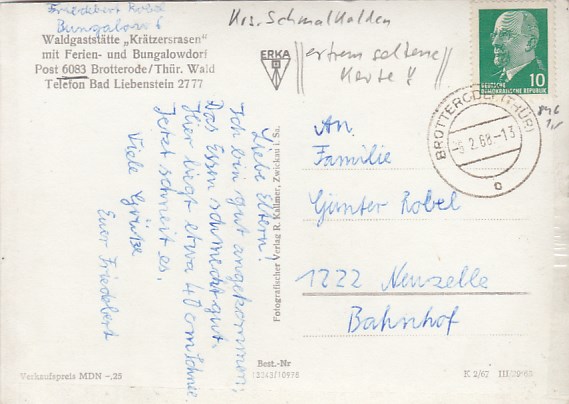 Friedebert Robel
Bungalow 6
Waldgaststätte „Krätzersrasen"
mit Ferien- und Bungalowdorf
Post 6083 Brotterode/Thür. Wald
Telefon Bad Liebenstein 2777
Krs. Schmalkalden
extrem seltene
Karte!
ERKA
10
DEUTSCHE
DEMOKRATISCHE REPUBLIK
BROTTERODE (THÜR)
-5.2.68.-13
c
Liebe Eltern!
Ich bin gut angekommen,
Das Essen schmeckt gut.
Hier liegt etwa 40 cm Schnee
Jetzt schneit es.
Viele Grüße
Euer Friedebert
Fotografischer Verlag R. Kallmer, Zwickau i. Sa.
An
Familie
Günter Robel
1222 Neuzelle
Bahnhof
Verkaufspreis MDN -,25
Best.-Nr
12343/10978
K 2/67